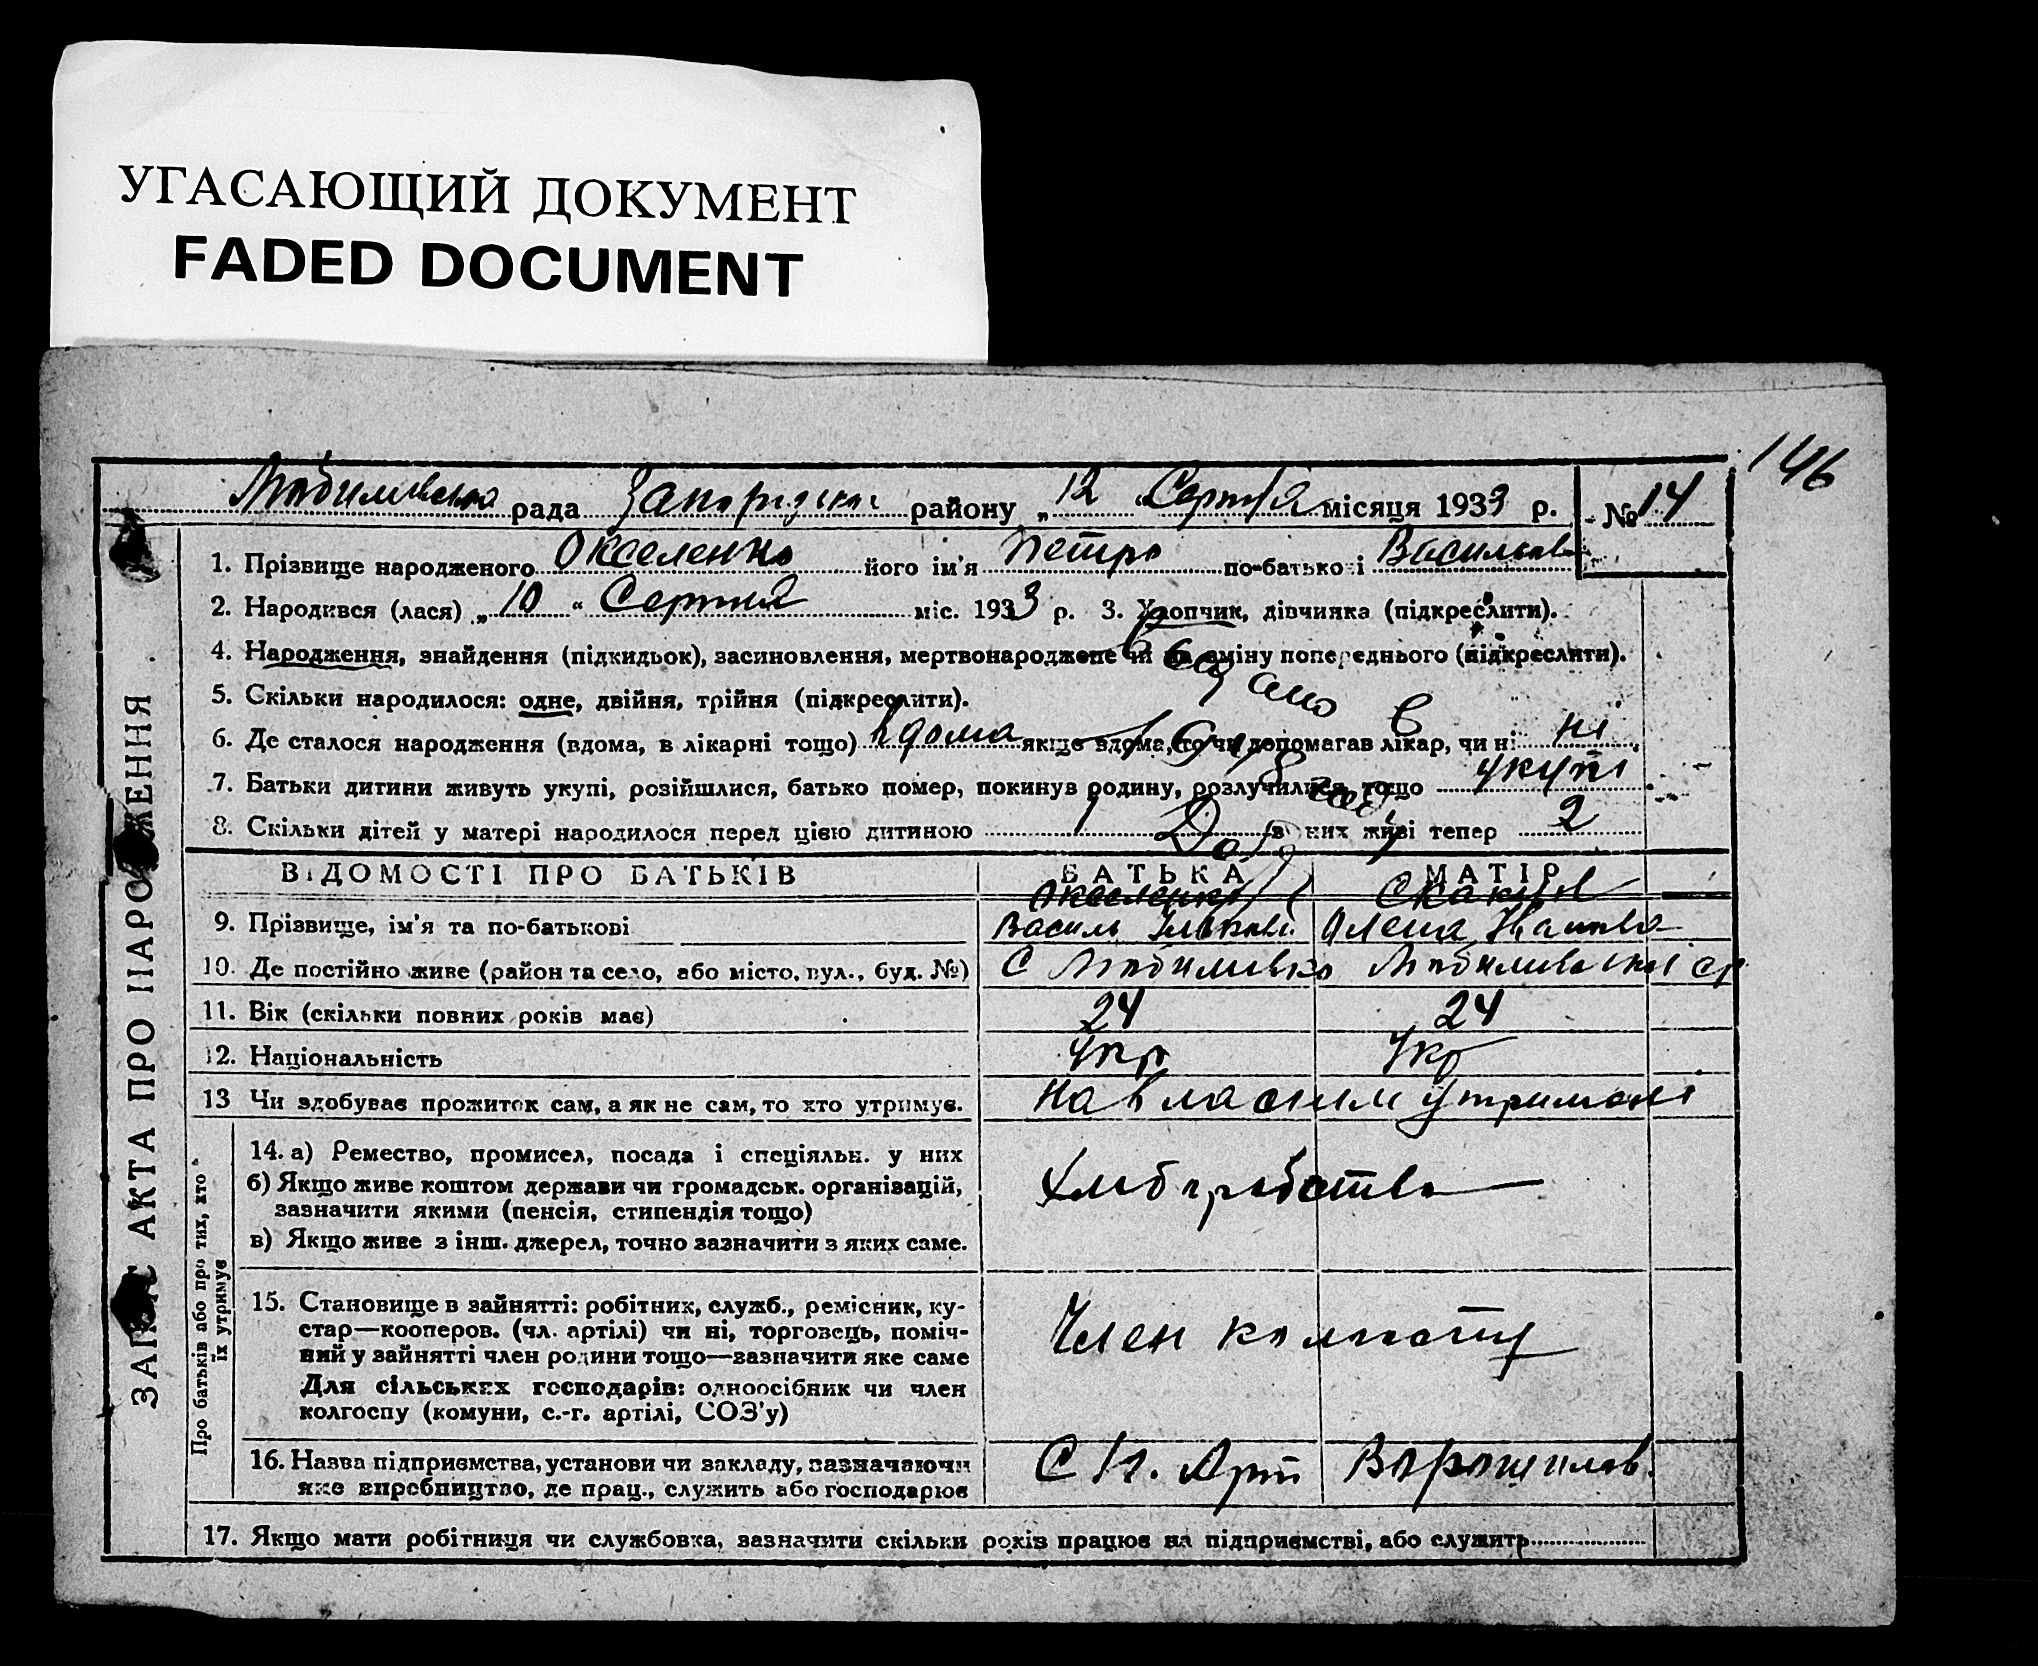 УГАСАЮЩИЙ ДОКУМЕНТ
FADED DOCUMENT
146
рада району „12 місяця 1933 р. № 14
1. Прізвище народженого Окселенко його ім'я Петро по-батькові Васильов
2. Народився (лася) „10“ Серпня міс. 1933 р. 3. Хлопчик, дівчинка (підкреслити).
4. Народження, знайдення (підкидьок), засиновлення, мертвонароджене чи на зміну попереднього (підкреслити).
5. Скільки народилося: одне, двійня, трійня (підкреслити).
6. Де сталося народження (вдома, в лікарні тощо) вдома якще вдома, то чи допомагав лікар, чи ні: ні
7. Батьки дитини живуть укупі, розійшлися, батько помер, покинув родину, розлучилися, тощо укупі
8. Скільки дітей у матері народилося перед цією дитиною 1 в них живі тепер 2
ВІДОМОСТІ ПРО БАТЬКІВ БАТЬКА МАТІР
Окселенко
9. Прізвище, ім'я та по-батькові Василь Олена
10. Де постійно живе (район та село, або місто, вул., буд. №) С
11. Вік (скільки повних років має) 24 24
12. Національність Укр Укр
13 Чи здобуває прожиток сам, а як не сам, то хто утримує. На власнім утримані
14. а) Ремество, промисел, посада і спеціяльн. у них
б) Якщо живе коштом держави чи громадськ. організацій,
зазначити якими (пенсія, стипендія тощо)
Хліборобство
в) Якщо живе з інш. джерел, точно зазначити з яких саме.
15. Становище в зайнятті: робітник, служб., ремісник, ку-
стар—кооперов. (чл. артілі) чи ні, торговець, поміч-
ний у зайнятті член родини тощо—зазначити яке саме
Член
Для сільських господарів: одноосібник чи член
колгоспу (комуни, с.-г. артілі, СОЗ'у)
16. Назва підприємства, установи чи закладу, зазначаючи
яке виробництво, де прац., служить або господарює
С/г. Арт Ворошилов.
17. Якщо мати робітниця чи службовка, зазначити скільки років працює на підприємстві, або служить
ЗАПИС АКТА ПРО НАРОДЖЕННЯ
Про батьків або про тих, хто
їх утримує